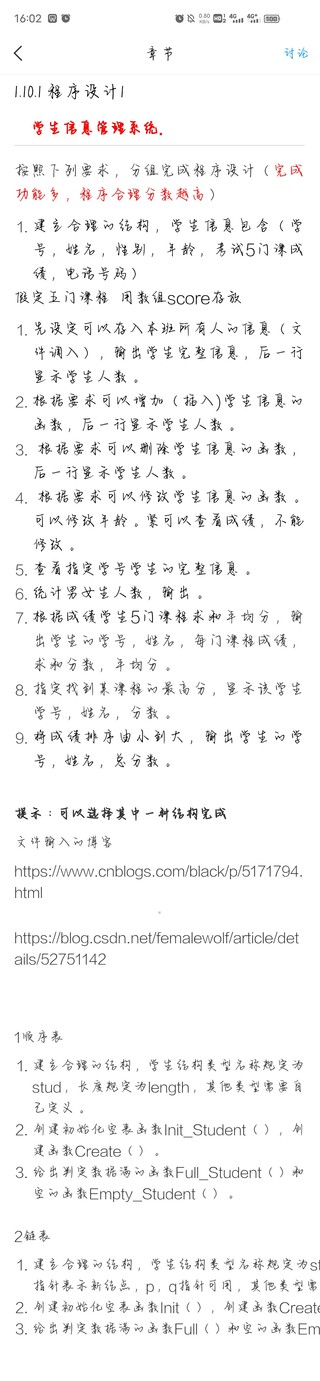 16:02
0.80 KB/s
HD 1 2
4G
4G+
80
章节
讨论
1.10.1 程序设计1
学生信息管理系统.
按照下列要求，分组完成程序设计（完成
功能多，程序合理分数越高）
1. 建立合理的结构，学生信息包含（学
号，姓名，性别，年龄，考试5门课成
绩，电话号码）
假定五门课程 用数组score存放
1. 先设定可以存入本班所有人的信息（文
件调入），输出学生完整信息，后一行
显示学生人数。
2. 根据要求可以增加（插入)学生信息的
函数，后一行显示学生人数。
3. 根据要求可以删除学生信息的函数，
后一行显示学生人数。
4. 根据要求可以修改学生信息的函数。
可以修改年龄。紧可以查看成绩，不能
修改。
5. 查看指定学号学生的完整信息。
6. 统计男女生人数，输出。
7. 根据成绩学生5门课程求和平均分，输
出学生的学号，姓名，每门课程成绩，
求和分数，平均分。
8. 指定找到某课程的最高分，显示该学生
学号，姓名，分数。
9. 将成绩排序由小到大，输出学生的学
号，姓名，总分数。
提示：可以选择其中一种结构完成
文件输入的博客
https://www.cnblogs.com/black/p/5171794.
html
https://blog.csdn.net/femalewolf/article/det
ails/52751142
1顺序表
1. 建立合理的结构，学生结构类型名称规定为
stud，长度规定为length，其他类型需要自
己定义。
2. 创建初始化空表函数Init_Student（），创
建函数Create（）。
3. 给出判定数据满的函数Full_Student（）和
空的函数Empty_Student（）。
2链表
1. 建立合理的结构，学生结构类型名称规定为st
指针表示新结点，p，q指针可用，其他类型需
2. 创建初始化空表函数Init（），创建函数Create
3. 给出判定数据满的函数Full（）和空的函数Em